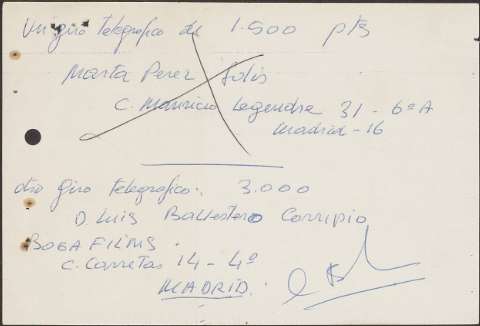 Un giro telegrafico de 1.500 pts
Marta Perez Solis
C. Mauricio Legendre 31 - 6º A
Madrid - 16
otro giro telegrafico. 3.000
D Luis Ballestero Corripio
BOGA FILMS.
C. Carretas 14 - 4º
MADRID.